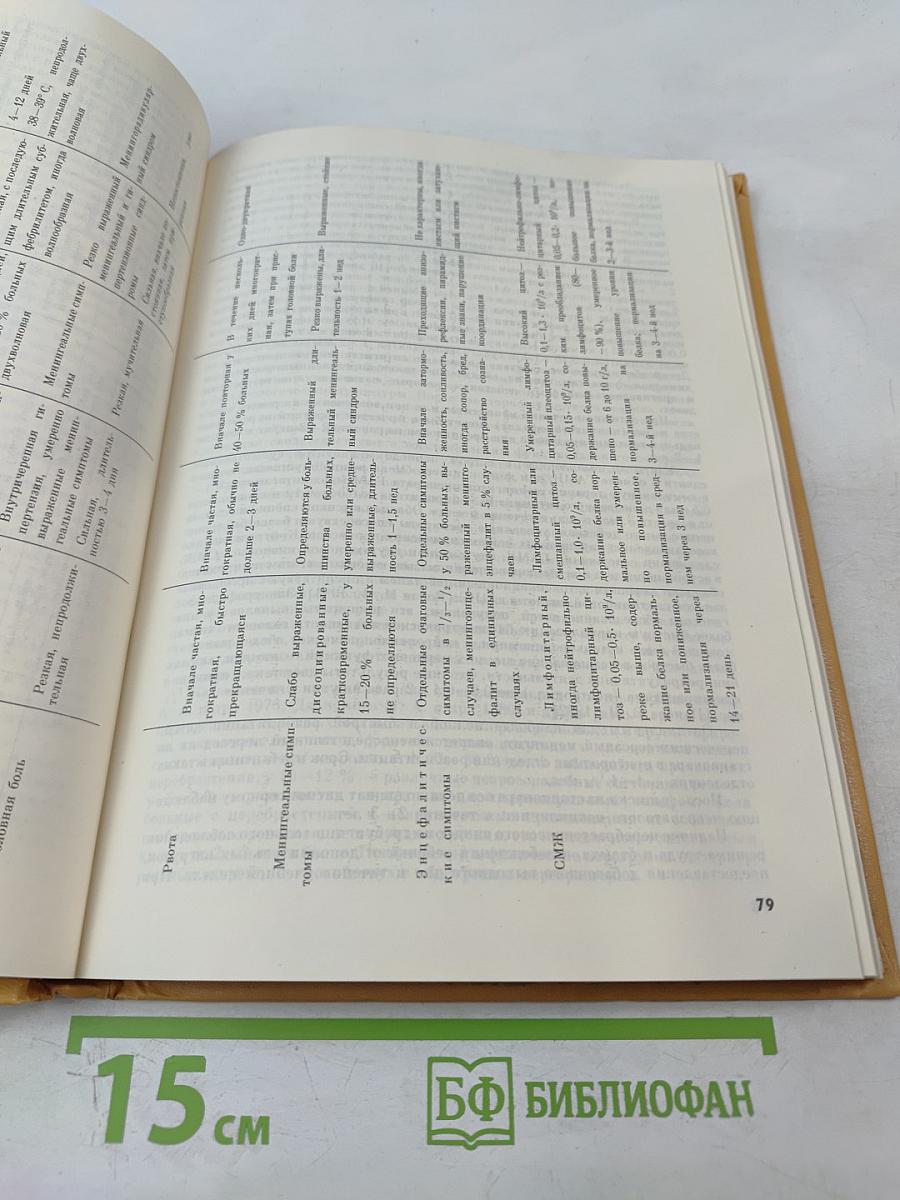 4—12 дней
38—39° С, непродол-
жительная, чаще двух-
волновая
щим длительным суб-
фебрилитетом, иногда
волнообразная
двухволновая
Менингорадикуляр-
ный синдром
Резко выраженный
менингеальный и ги-
пертензионные синд-
ромы
Менингеальные симп-
томы
Внутричерепная ги-
пертензия, умеренно
выраженные менин-
геальные симптомы
Резкая, мучительная
Сильная, длитель-
ностью 3—4 дня
Резкая, непродолжи-
тельная
Рвота
Вначале частая, мно-
гократная, быстро
прекращающаяся
Вначале частая, мно-
гократная, обычно не
дольше 2—3 дней
Вначале повторная у
40—50 % больных
В течение несколь-
ких дней многократ-
ная, затем при прис-
тупах головной боли
Одно-двукратная
Менингеальные симп-
томы
Слабо выраженные,
диссоциированные,
кратковременные, у
15—20 % больных
не определяются
Определяются у боль-
шинства больных,
умеренно или средне-
выраженные, длитель-
ность 1—1,5 нед
Выраженный дли-
тельный менингеаль-
ный синдром
Резко выражены, дли-
тельность 1—2 нед
Выраженные, стойкие
Энцефалитичес-
кие симптомы
Отдельные очаговые
симптомы в 1/3—1/2
случаев, менингоэнце-
фалит в единичных
случаях
Отдельные симптомы
у 50 % больных, вы-
раженный менинго-
энцефалит в 5 % слу-
чаев
Вначале затормо-
женность, сонливость,
иногда сопор, бред,
расстройство созна-
ния
Преходящие анизо-
рефлексия, пирамид-
ные знаки, нарушение
координации
Не характерны, иногда
нистагм или затухаю-
щий нистагм
СМЖ
Лимфоцитарный,
иногда нейтрофильно-
лимфоцитарный ци-
тоз — 0,05—0,5· 10⁹/л,
реже выше, содер-
жание белка нормаль-
ное или пониженное,
нормализация через
14—21 день
Лимфоцитарный или
смешанный цитоз —
0,1—1,0· 10⁹/л, со-
держание белка нор-
мальное или умерен-
но повышенное,
нормализация в сред-
нем через 3 нед
Умеренный лимфо-
цитарный плеоцитоз —
0,05—0,15· 10⁹/л, со-
держание белка повы-
шено — от 6 до 10 г/л,
нормализация на
3—4-й нед
Высокий цитоз —
0,1—1,3 · 10⁹/л с рез-
ким преобладанием
лимфоцитов (80—
—90 %), умеренное
повышение уровня
белка; нормализация
на 3—4-й нед
Нейтрофильно-лимфо-
цитарный цитоз —
0,05—0,2· 10⁹/л, не-
большое повышение
белка, нормализация на
2—3-й нед
79
15 см
БФ БИБЛИОФАН